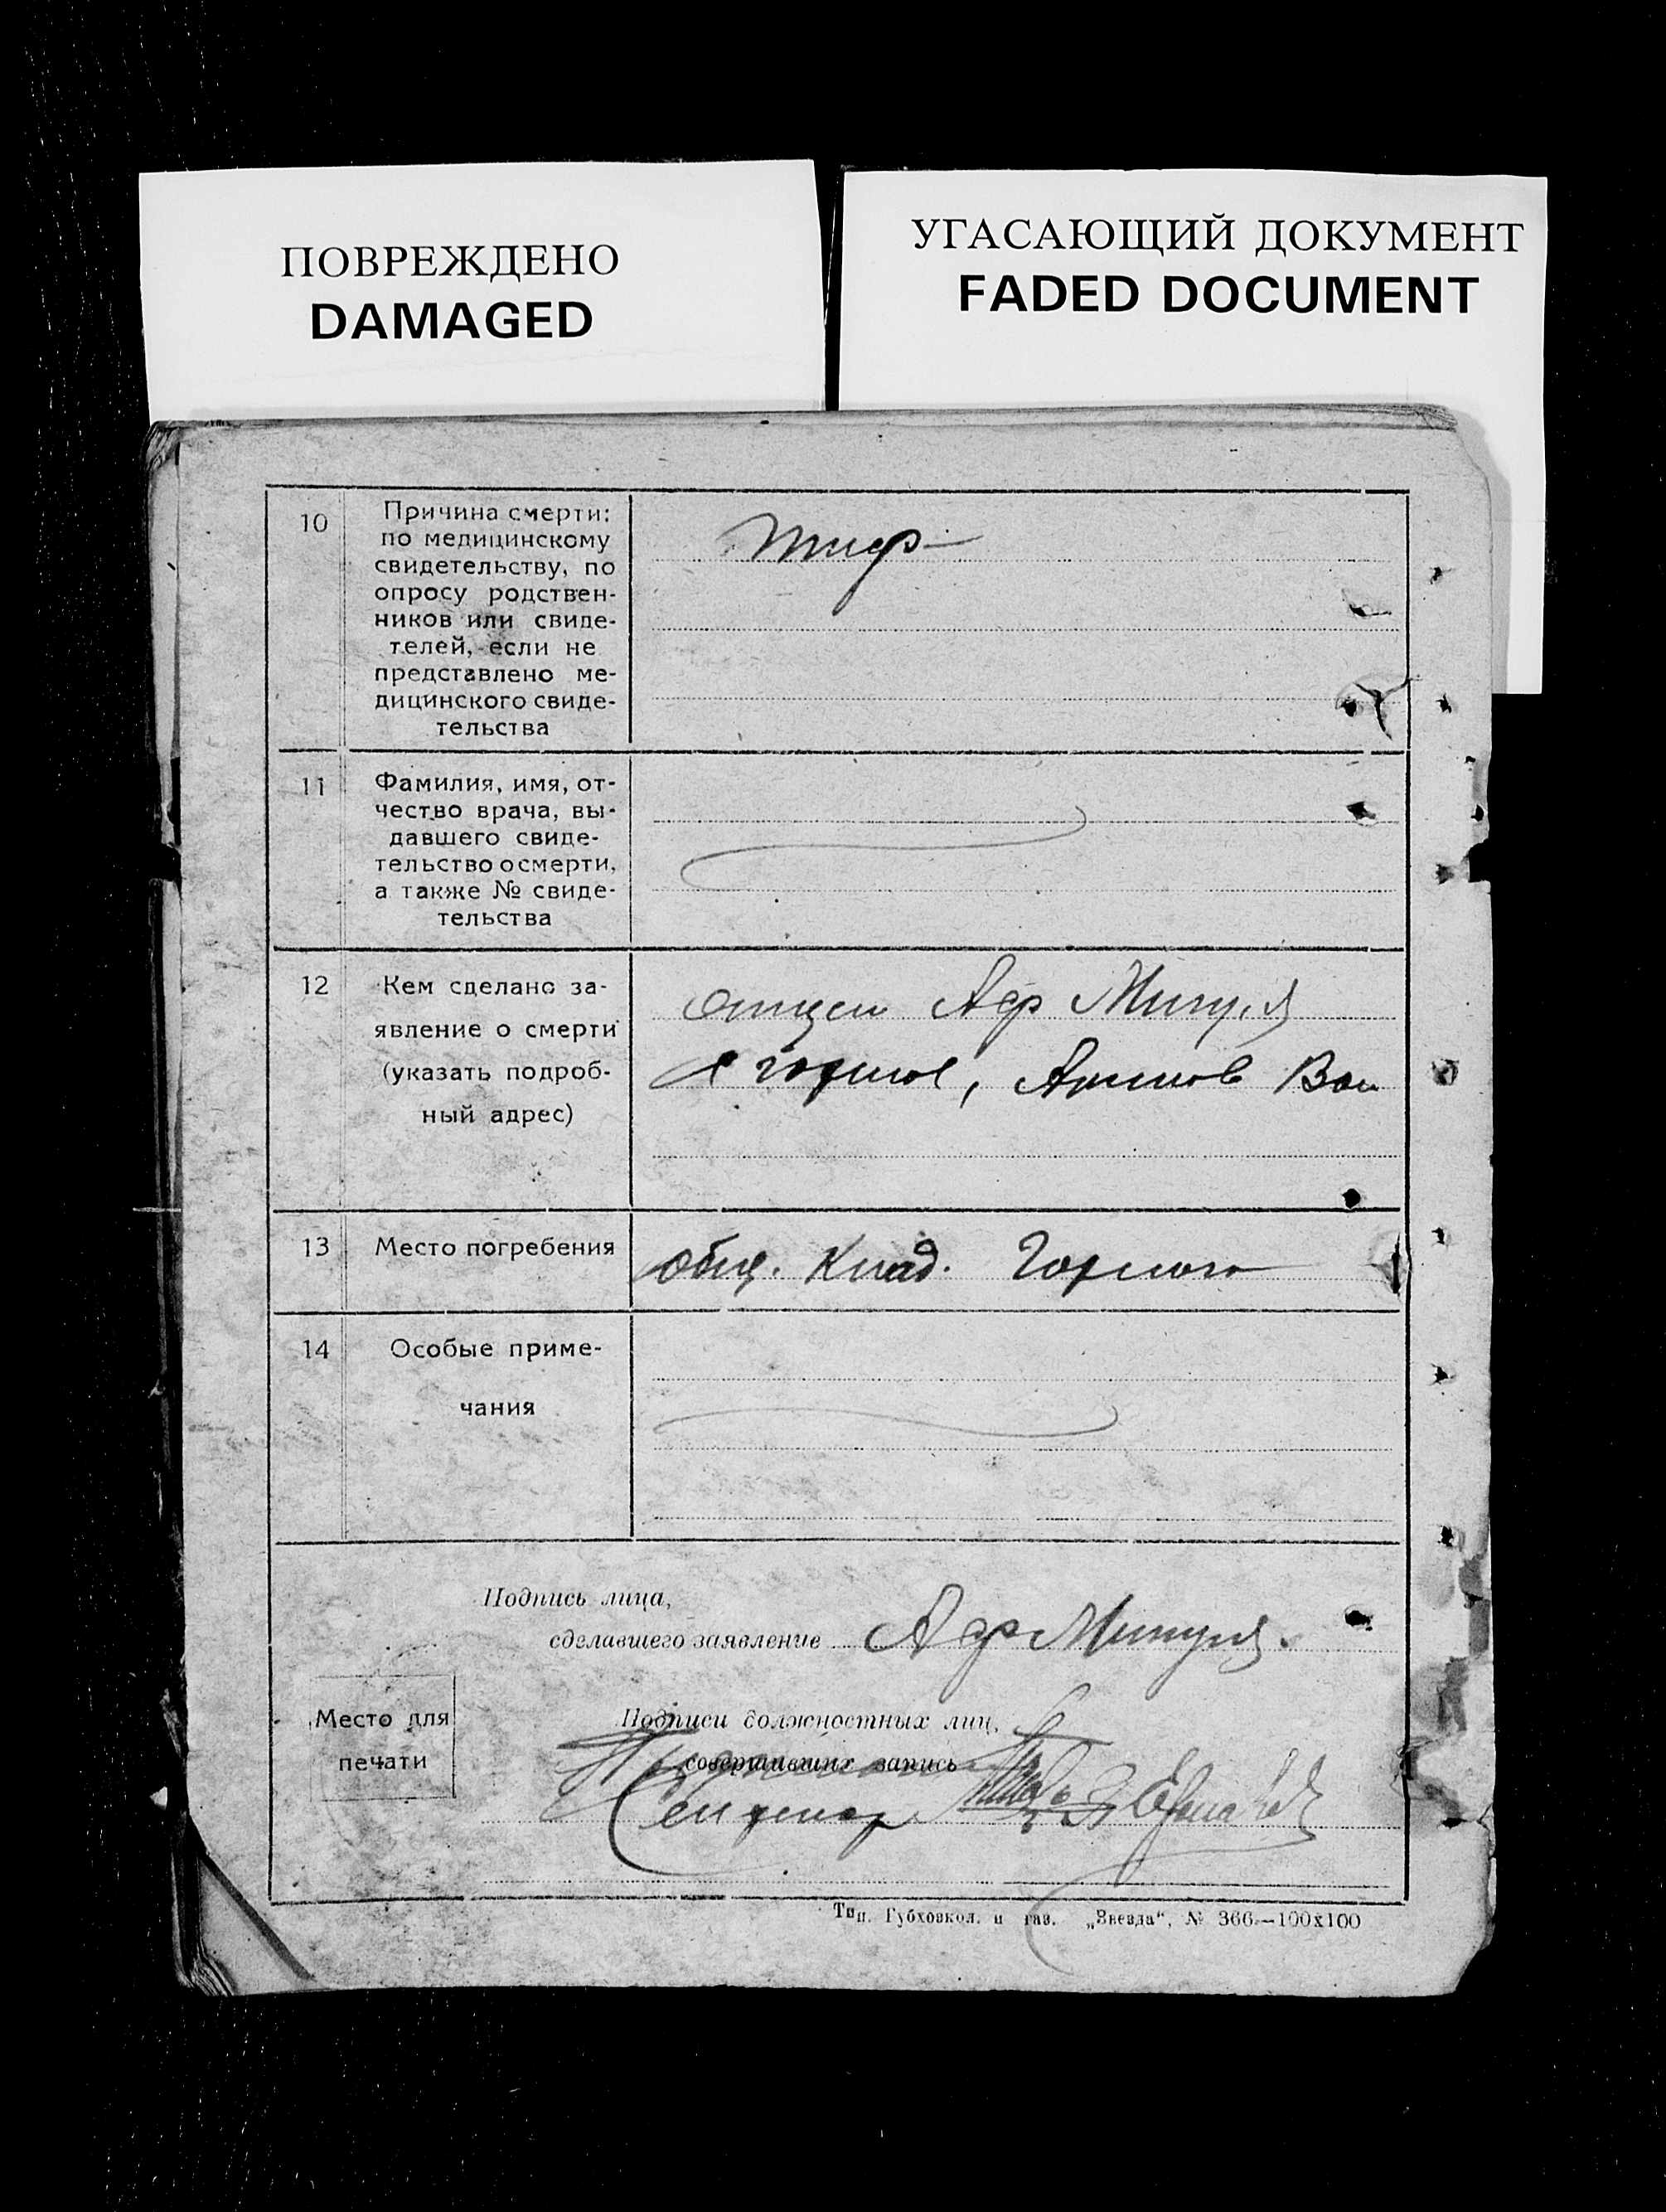 ПОВРЕЖДЕНО
DAMAGED
УГАСАЮЩИЙ ДОКУМЕНТ
FADED DOCUMENT
10
Причина смерти:
по медицинскому
свидетельству, по
опросу родствен-
ников или свиде-
телей, если не
представлено ме-
дицинского свиде-
тельства
тиф
11
Фамилия, имя, от-
чество врача, вы-
давшего свиде-
тельство о смерти,
а также № свиде-
тельства
12
Кем сделано за-
явление о смерти
(указать подроб-
ный адрес)
отцем
13
Место погребения
Общ. Клад.
14
Особые приме-
чания
Подпись лица,
сделавшего заявление
Место для
печати
Подписи должностных лиц,
совершивших запись
Тип. Губховкол. и газ. „Звезда“, № 366—100х100